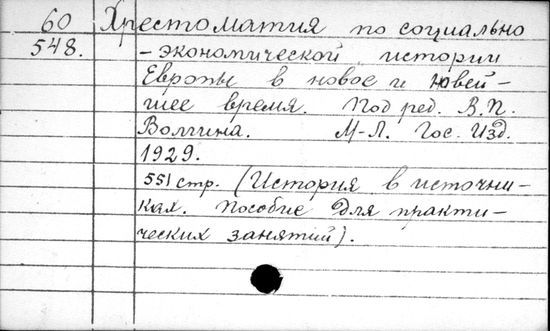 60 Хрестоматия по социально
548. -экономической истории
Европы в новое и новей-
шее время. Под ред. В.П.
Волгина. М-Л. Гос. Изд.
1929.
551 стр. (История в источни-
ках. Пособие для практи-
ческих занятий).